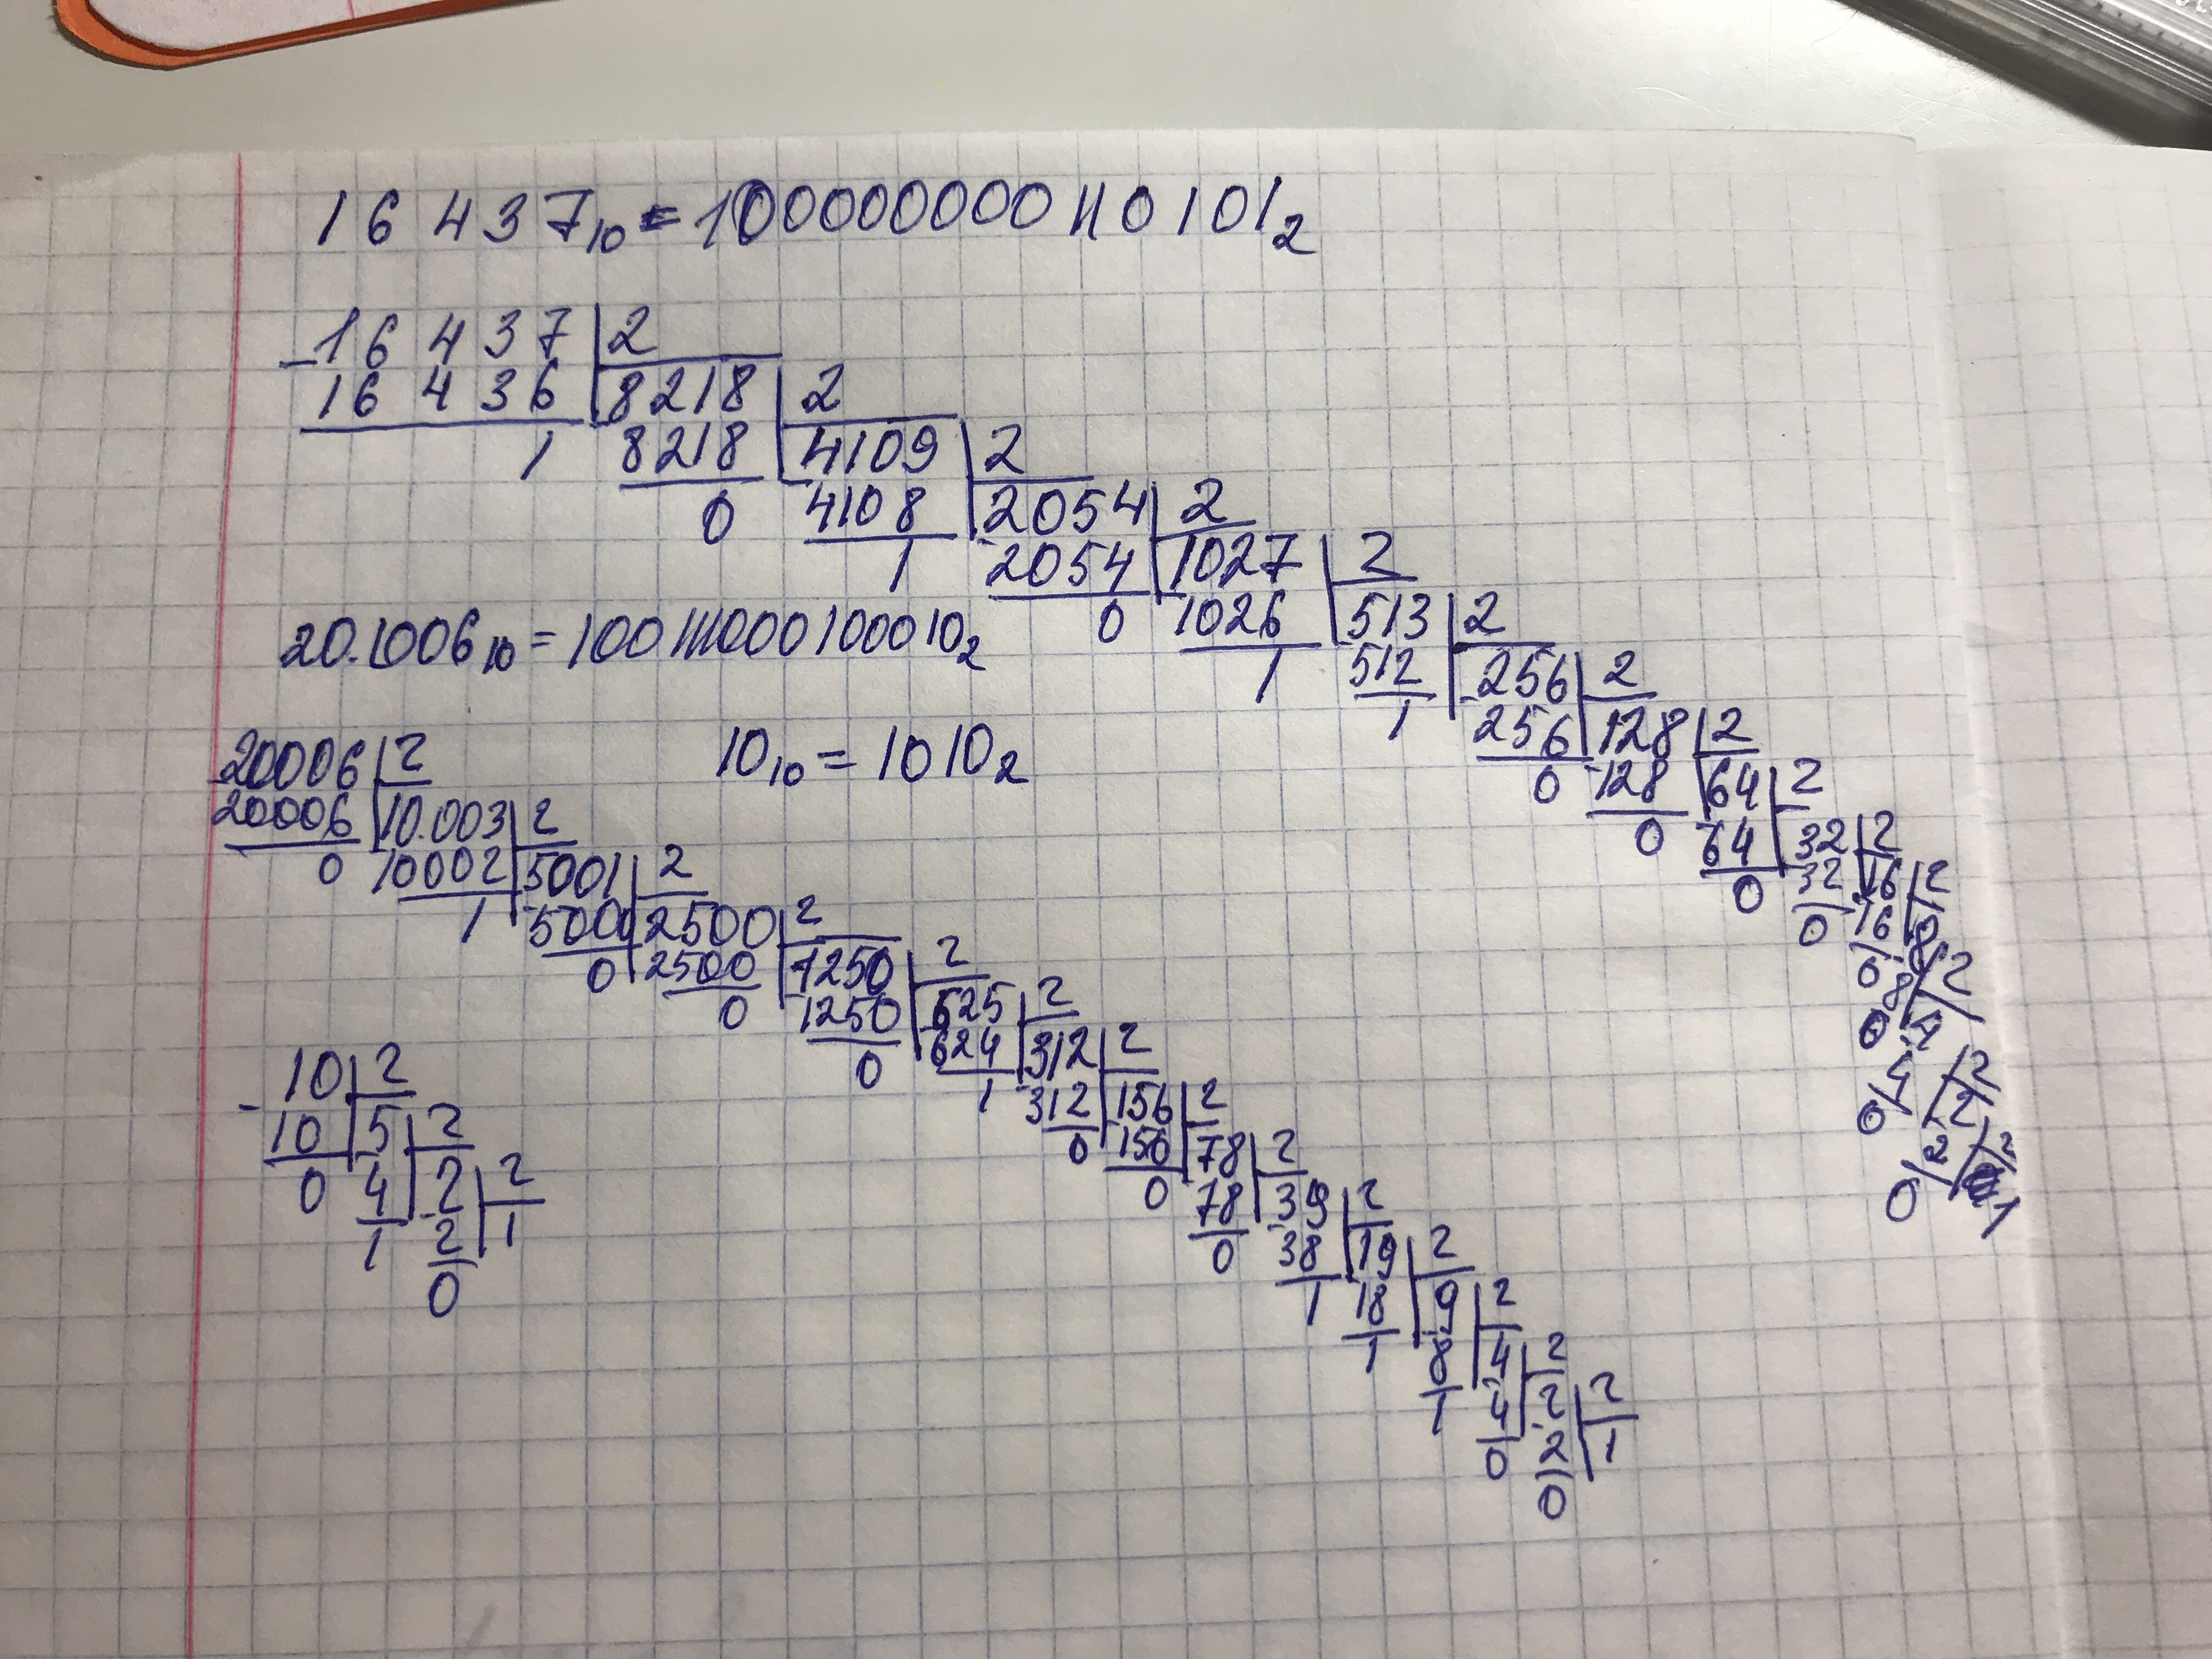 16 437₁₀ = 100000000110101₂
16 437 | 2
16 436 | 8218 | 2
1 8218 | 4109 | 2
0 4108 | 2054 | 2
1 2054 | 1027 | 2
0 1026 | 513 | 2
1 512 | 256 | 2
1 256 | 128 | 2
0 128 | 64 | 2
0 64 | 32 | 2
0 32 | 16 | 2
0 16 | 8 | 2
0 8 | 4 | 2
0 4 | 2 | 2
0 2 | 1
0
20.1006₁₀ = 100111000100010₂
10₁₀ = 1010₂
20006 | 2
20006 | 10.003 | 2
0 10002 | 5001 | 2
1 5000 | 2500 | 2
0 2500 | 1250 | 2
0 1250 | 625 | 2
0 624 | 312 | 2
1 312 | 156 | 2
0 156 | 78 | 2
0 78 | 39 | 2
0 38 | 19 | 2
1 18 | 9 | 2
1 8 | 4 | 2
1 4 | 2 | 2
0 2 | 1
0
10 | 2
10 | 5 | 2
0 4 | 2 | 2
1 2 | 1
0